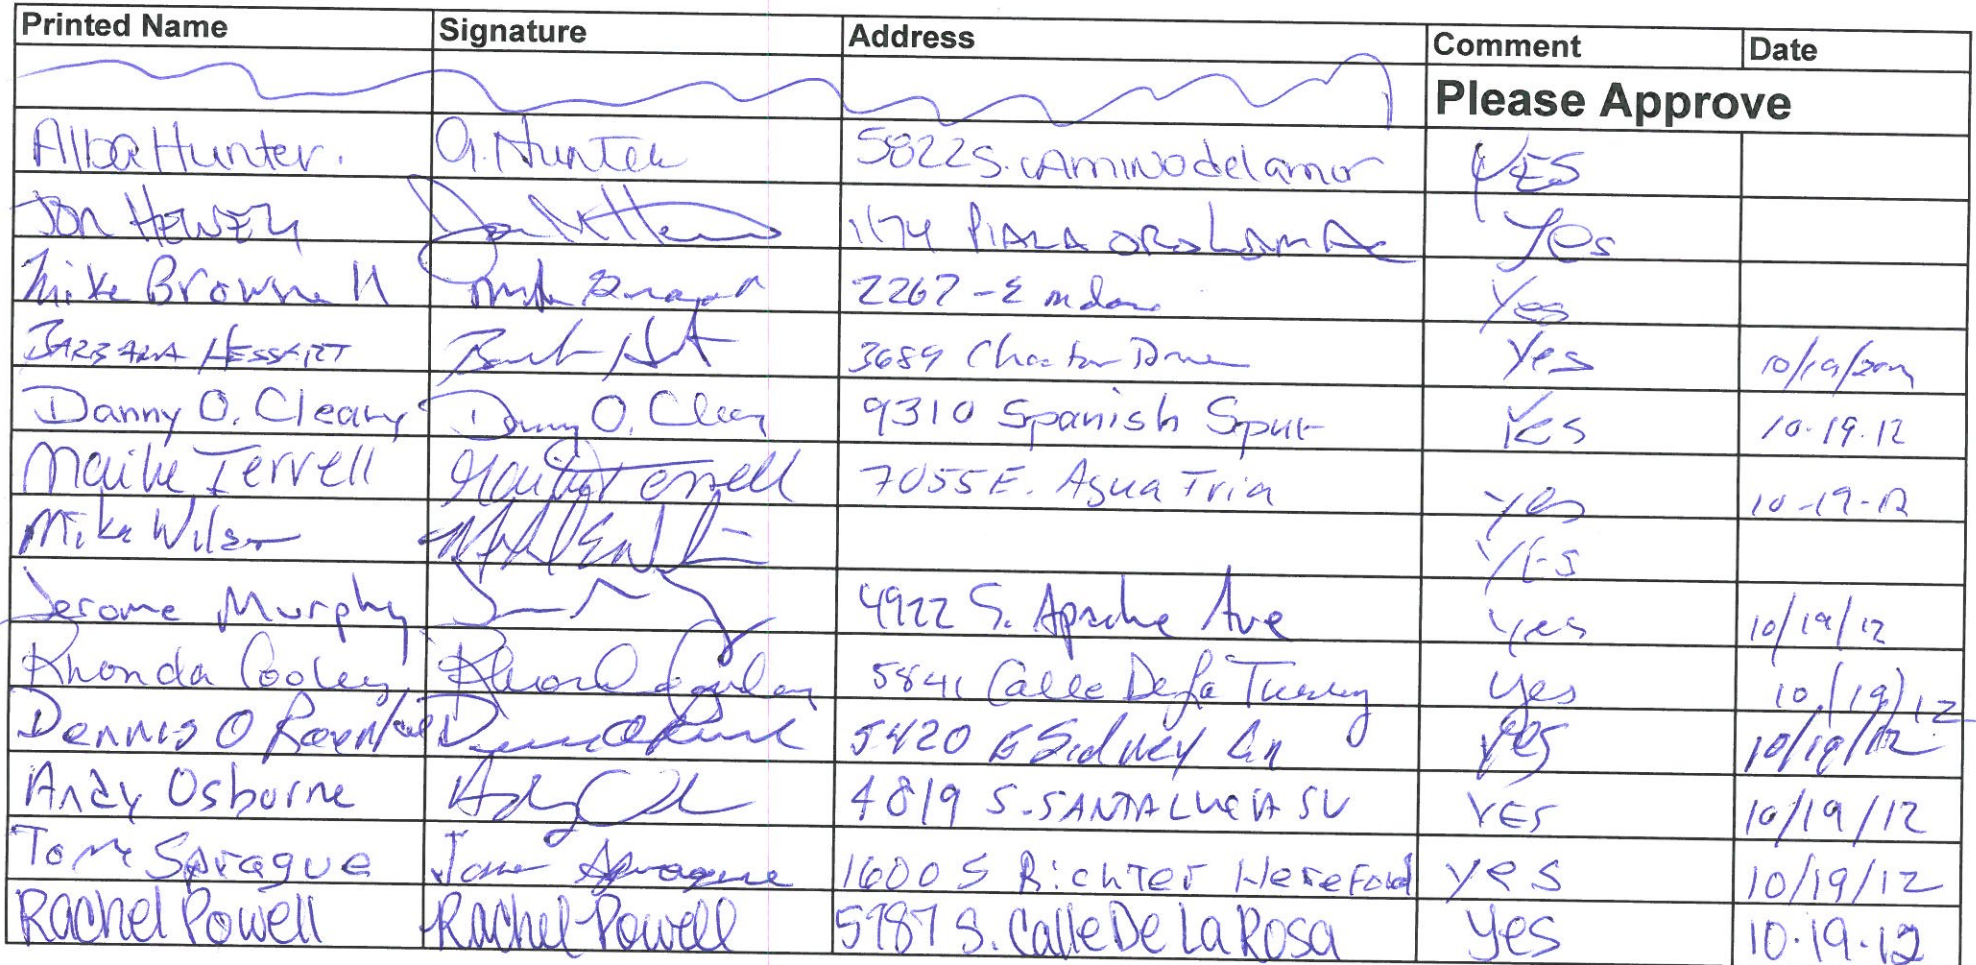 Printed Name Signature Address Comment Date
Please Approve
Alba Hunter. A. Hunter 5822 S. CAMINO del amor YES
JON 1174 Yes
Mike Brownell 2267 - E Yes
BARBARA 3689 Yes 10/19/2012
Danny O. Cleary Danny O. Cleary 9310 Spanish Spur Yes 10.19.12
Maike Terrell Maike Terrell 7055 E. Agua Fria yes 10-19-12
Mike Wilson YES
Jerome Murphy 4922 S. Apache Ave yes 10/19/12
Rhonda Cooley Rhonda Cooley 5841 Calle De La yes 10/19/12
Dennis O 5420 E Sidney Ln yes 10/19/12
Andy Osborne 4819 S. SANTA YES 10/19/12
Tom Sprague Tom Sprague 1600 S Richter Hereford yes 10/19/12
Rachel Powell Rachel Powell 5987 S. Calle De La Rosa yes 10.19.12